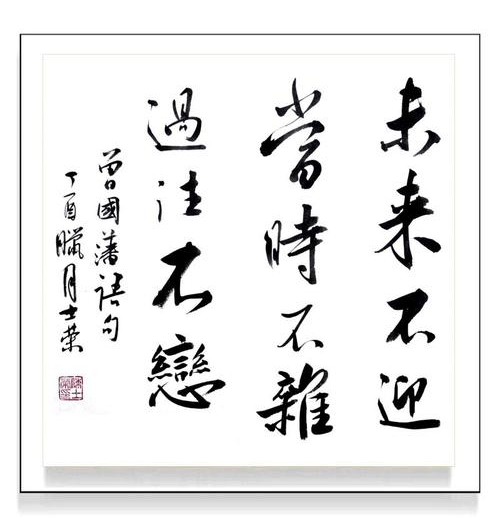 未来不迎
當時不雜
過往不戀
曾國藩語句
丁酉臘月士荣